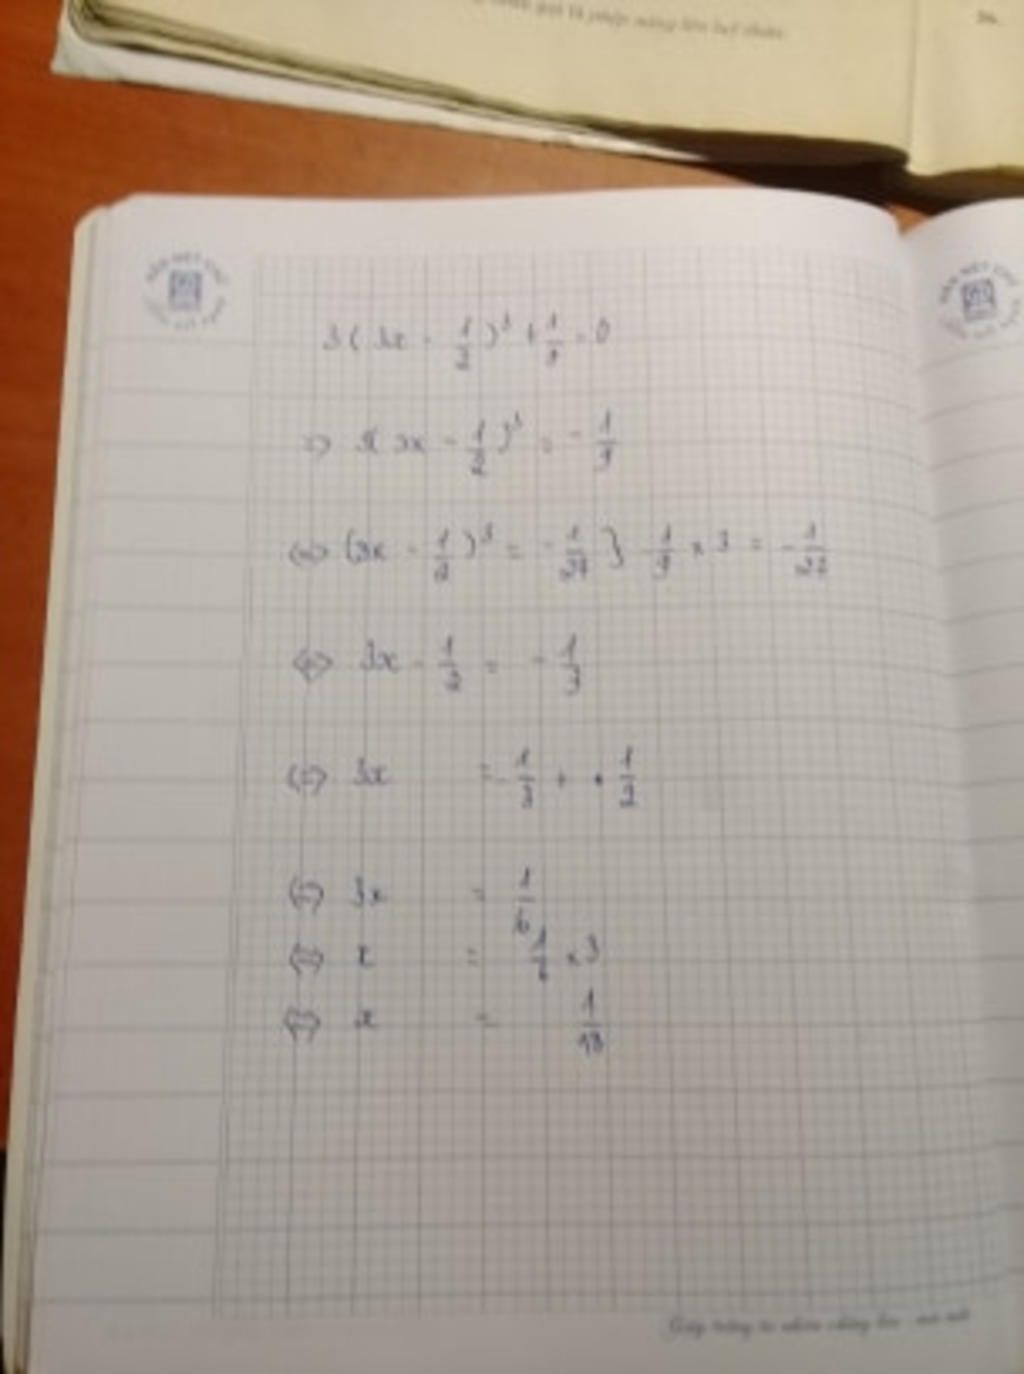 3(3x - 1/2)³ + 1/9 = 0
=> 3(3x - 1/2)³ = - 1/9
<=> (3x - 1/2)³ = - 1/27 } 1/9 x 3 = - 1/27
<=> 3x - 1/2 = - 1/3
<=> 3x = - 1/3 + 1/2
<=> 3x = 1/6
<=> x = 1/6 x 3
<=> x = 1/18